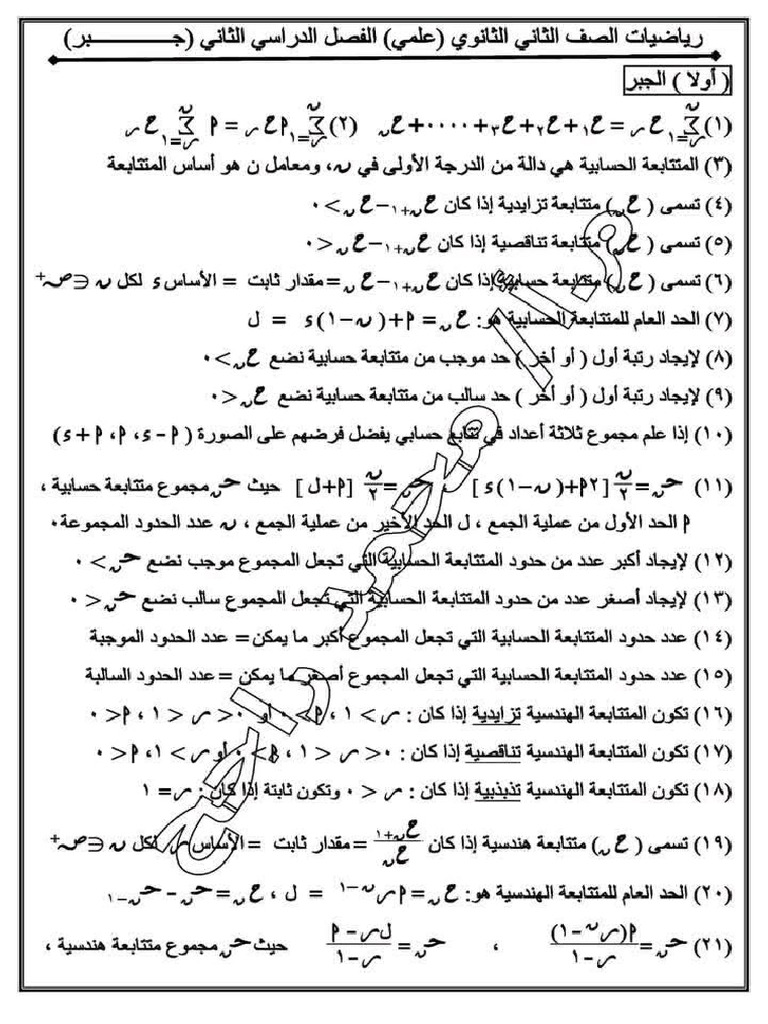 رياضيات الصف الثاني الثانوي (علمي) الفصل الدراسي الثاني (جـــــــبر)
( أولا ) الجبر
(١) ∑ᵣ₌₁ⁿ حᵣ = ح١ + ح٢ + ح٣ + ٠٠٠٠ + حن (٢) ∑ᵣ₌₁ⁿ أ حᵣ = أ ∑ᵣ₌₁ⁿ حᵣ
(٣) المتتابعة الحسابية هي دالة من الدرجة الأولى في ن، ومعامل ن هو أساس المتتابعة
(٤) تسمى ( حن) متتابعة تزايدية إذا كان حن+١ − حن > ٠
(٥) تسمى ( حن) متتابعة تناقصية إذا كان حن+١ − حن < ٠
(٦) تسمى ( حن) متتابعة حسابية إذا كان حن+١ − حن = مقدار ثابت = الأساس ء لكل ن ∈ ص+
(٧) الحد العام للمتتابعة الحسابية هو: حن = أ + (ن − ١) ء = ل
(٨) لإيجاد رتبة أول ( أو أخر ) حد موجب من متتابعة حسابية نضع حن > ٠
(٩) لإيجاد رتبة أول ( أو أخر ) حد سالب من متتابعة حسابية نضع حن < ٠
(١٠) إذا علم مجموع ثلاثة أعداد في تتابع حسابي يفضل فرضهم على الصورة ( أ - ء، أ، أ + ء)
(١١) جـن = ن/٢ [ ٢أ + (ن − ١) ء ] جـن = ن/٢ [أ + ل ] حيث جـن مجموع متتابعة حسابية ،
أ الحد الأول من عملية الجمع ، ل الحد الأخير من عملية الجمع ، ن عدد الحدود المجموعة٠
(١٢) لإيجاد أكبر عدد من حدود المتتابعة الحسابية التي تجعل المجموع موجب نضع جـن > ٠
(١٣) لإيجاد أصغر عدد من حدود المتتابعة الحسابية التي تجعل المجموع سالب نضع جـن < ٠
(١٤) عدد حدود المتتابعة الحسابية التي تجعل المجموع أكبر ما يمكن = عدد الحدود الموجبة
(١٥) عدد حدود المتتابعة الحسابية التي تجعل المجموع أصغر ما يمكن = عدد الحدود السالبة
(١٦) تكون المتتابعة الهندسية تزايدية إذا كان : ر > ١ ، أ > ٠ أو ٠ < ر < ١ ، أ < ٠
(١٧) تكون المتتابعة الهندسية تناقصية إذا كان : ٠ < ر < ١ ، أ > ٠ أو ر > ١ ، أ < ٠
(١٨) تكون المتتابعة الهندسية تذبذبية إذا كان : ر < ٠ وتكون ثابتة إذا كان : ر = ١
(١٩) تسمى ( حن) متتابعة هندسية إذا كان حن+١ / حن = مقدار ثابت = الأساس ر لكل ن ∈ ص+
(٢٠) الحد العام للمتتابعة الهندسية هو: حن = أ رⁿ⁻¹ = ل ، حن = جـن - جـن-١
(٢١) جـن = أ(رⁿ − ١) / (ر − ١) ، جـن = (ل ر − أ) / (ر − ١) حيث جـن مجموع متتابعة هندسية ،